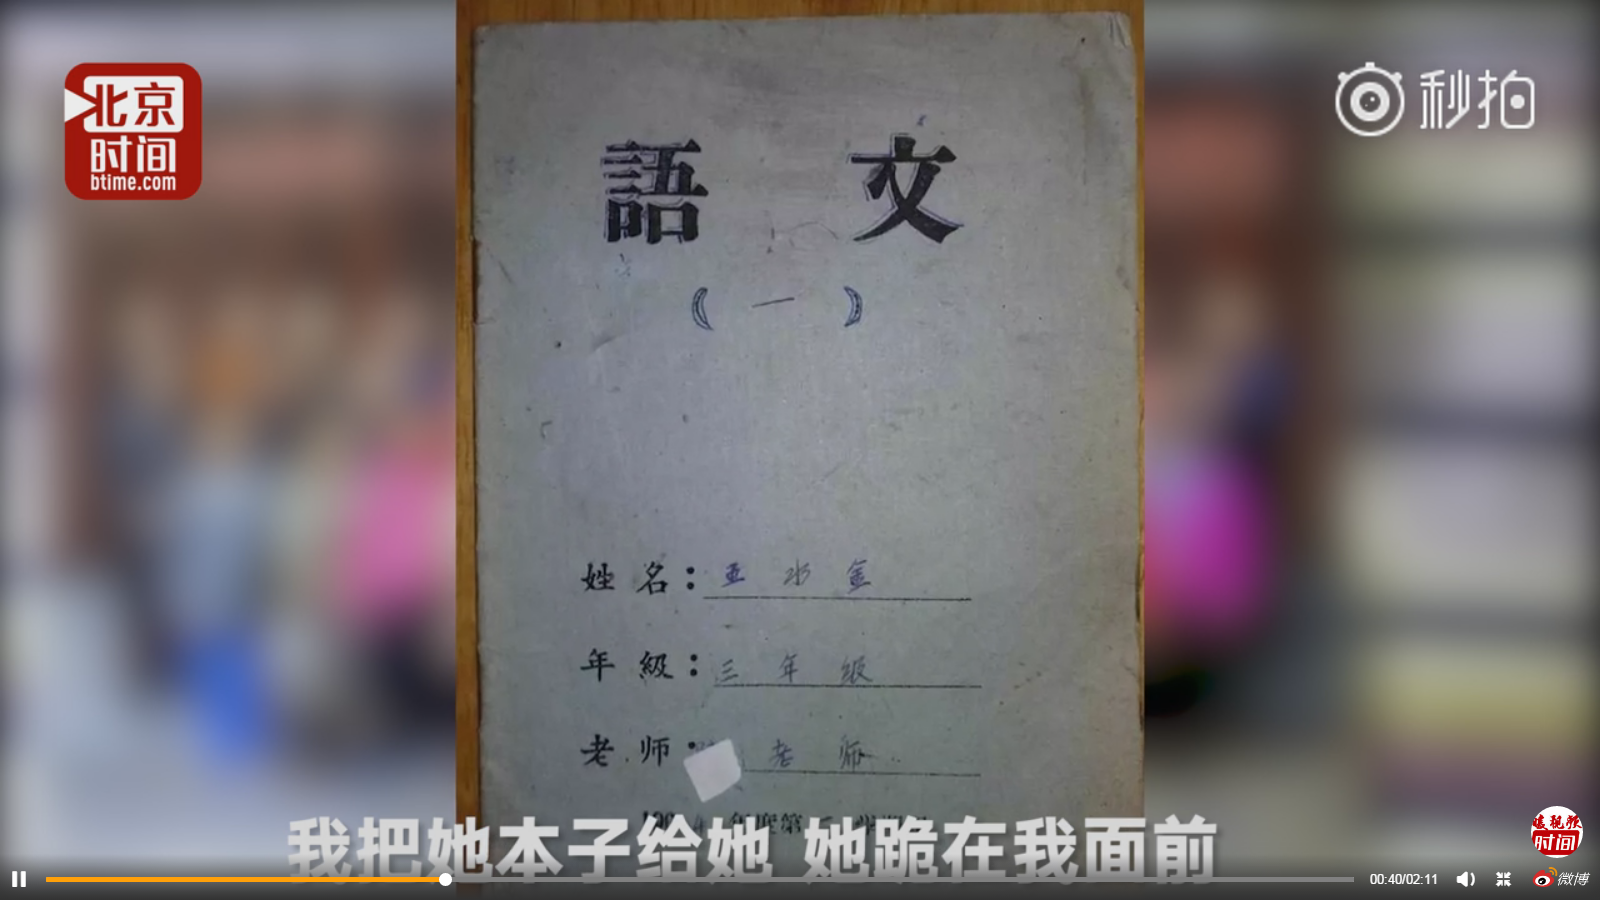 北京
时间
btime.com
秒拍
語文
(一)
姓名：王冰金
年級：三年级
老师：老师
我把她本子给她 她跪在我面前
00:40/02:11
时间
微博